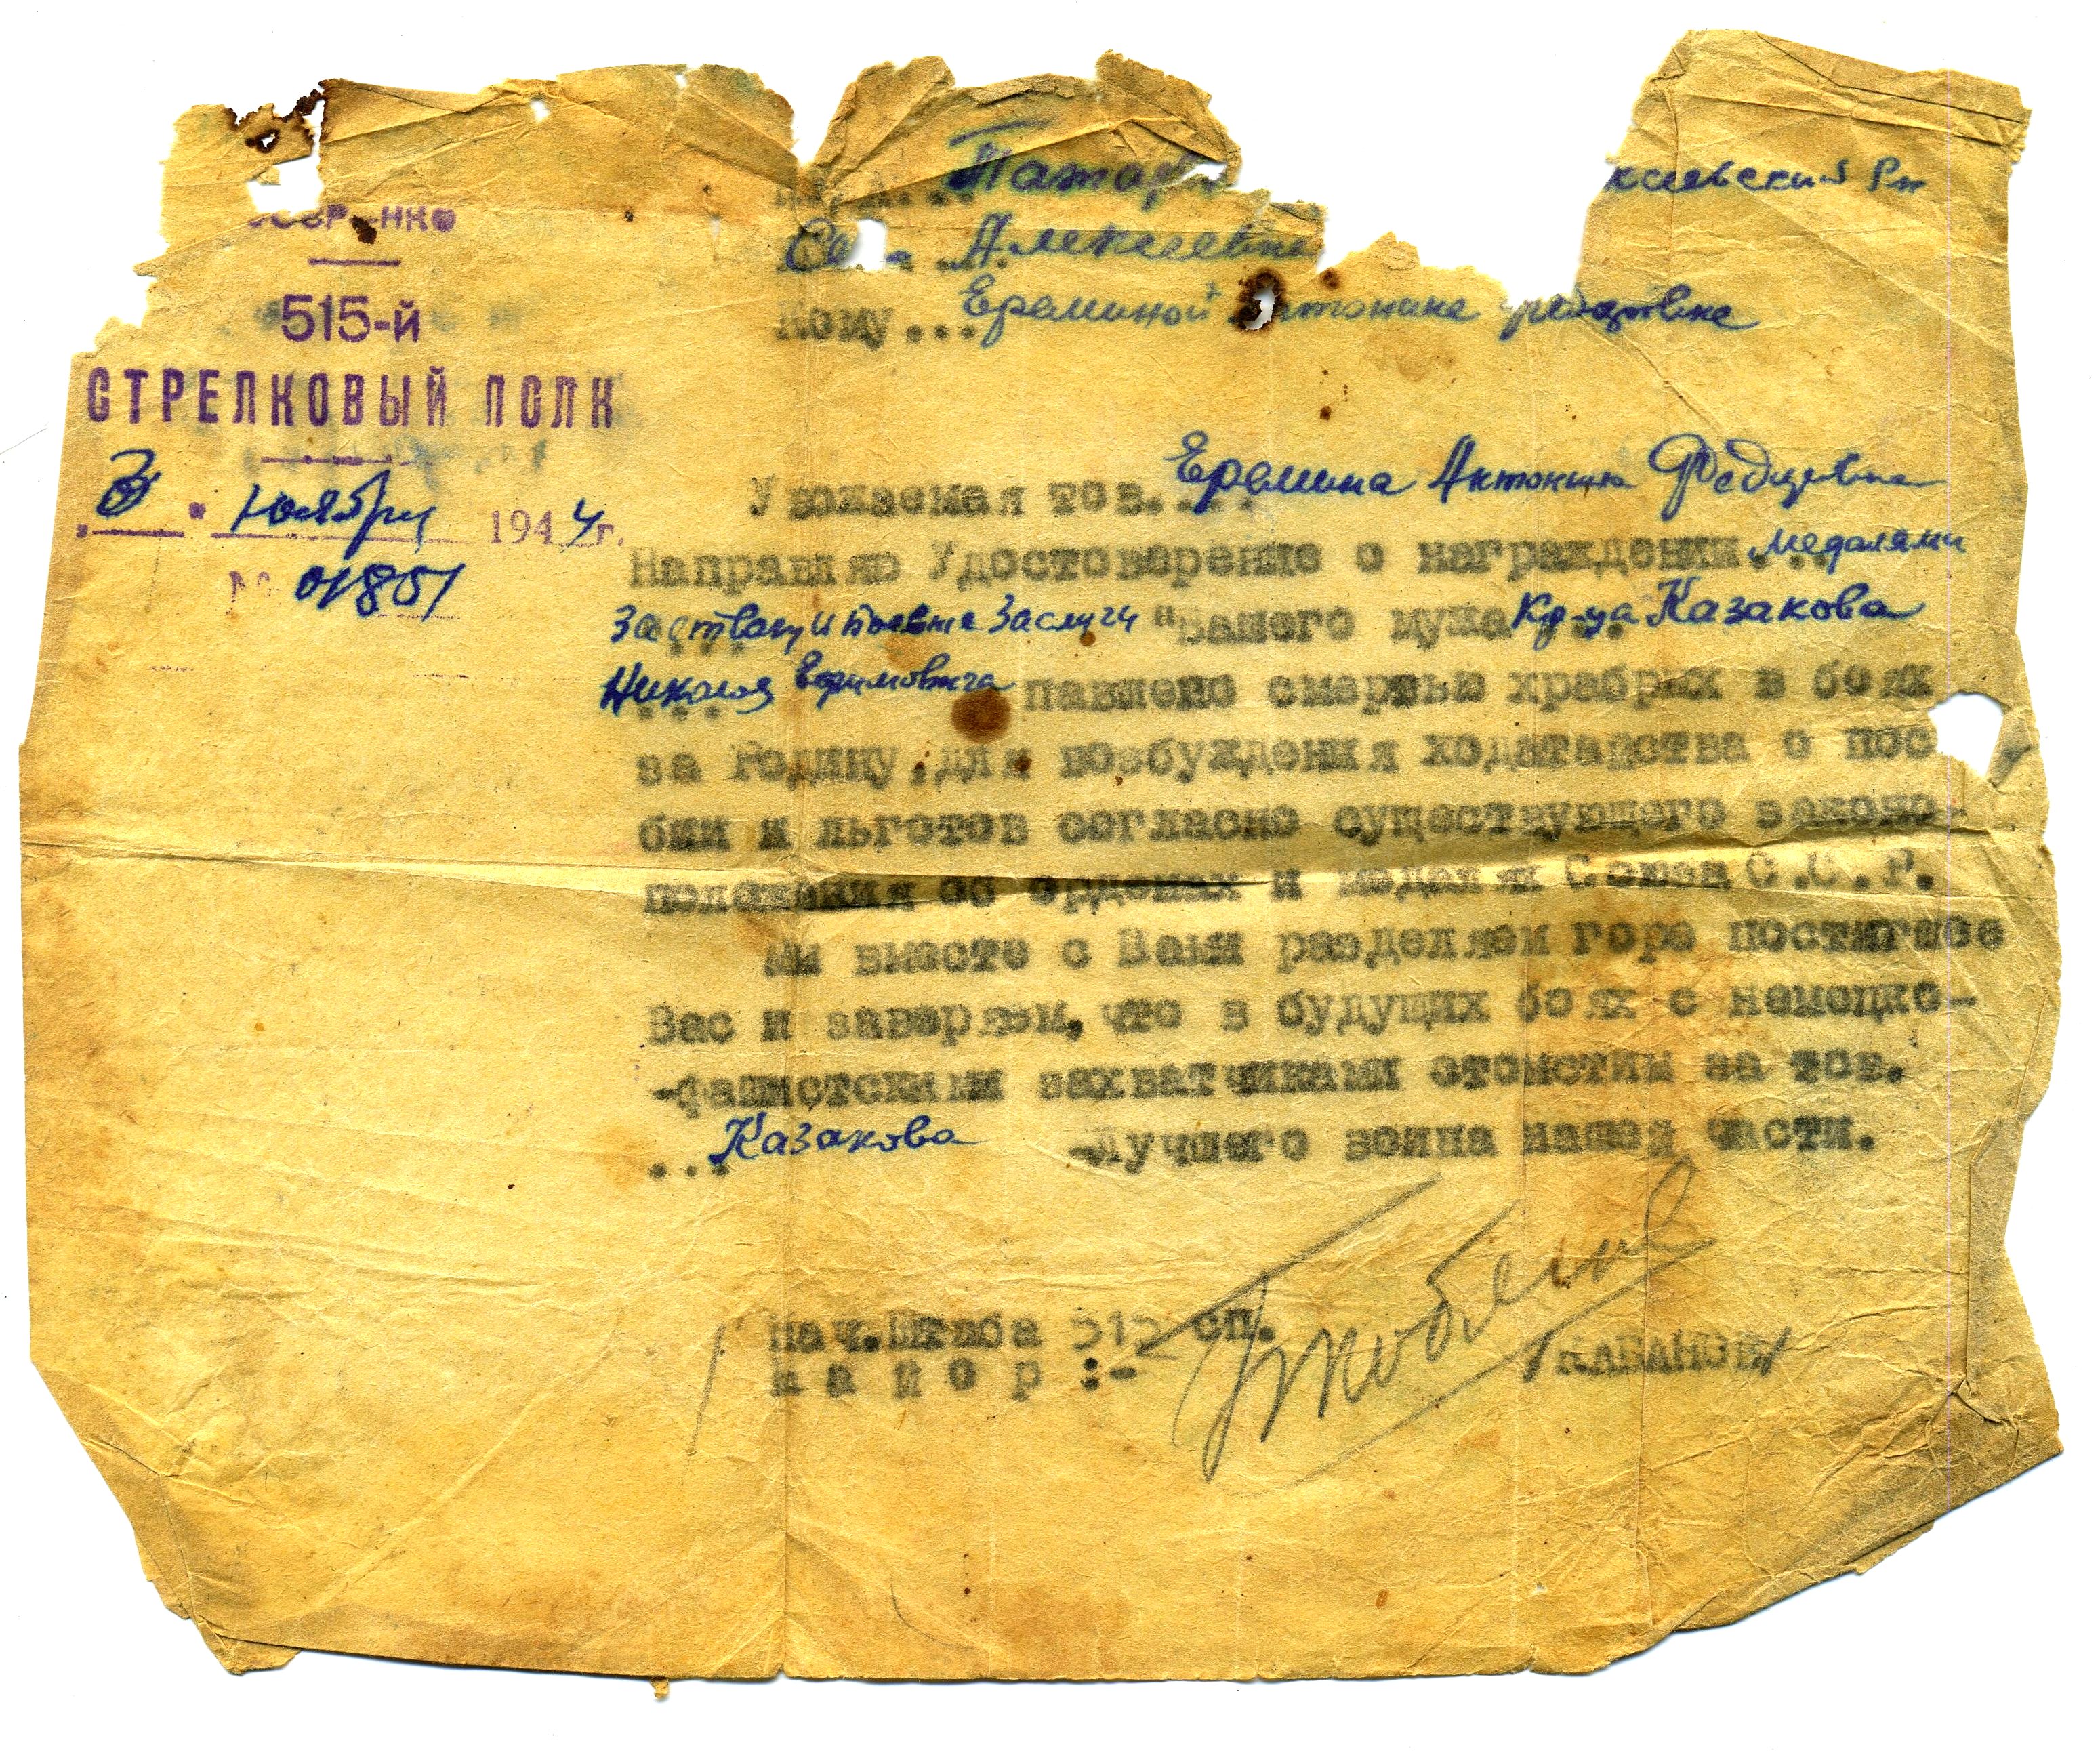 НКО
515-й
СТРЕЛКОВЫЙ ПОЛК
"3" ноября 1944 г.
№ 01801
ксеевский Рн
Алексеевке
Кому... Ереминой Антонине
Уважаемая тов... Еремина Антонина Федцевна
Направляю Удостоверение о награждении... медалями
За отвагу и боевые Заслуги "Вашего мужа Кр-ца Казакова
... Николая Ефимовича павшего смертью храбрых в боях
за Родину, для возбуждения ходатайства о пос
бии и льготов согласно существующего законо
положения об орденах и медалях Союза С.С.Р.
Мы вместе с Вами разделяем горе постигшее
Вас и заверяем, что в будущих боях с немецко-
-фашистскими захватчиками отомстим за тов.
... Казакова -Лучшего воина нашей части.
Нач.Штаба 515 сп.
Майор :-